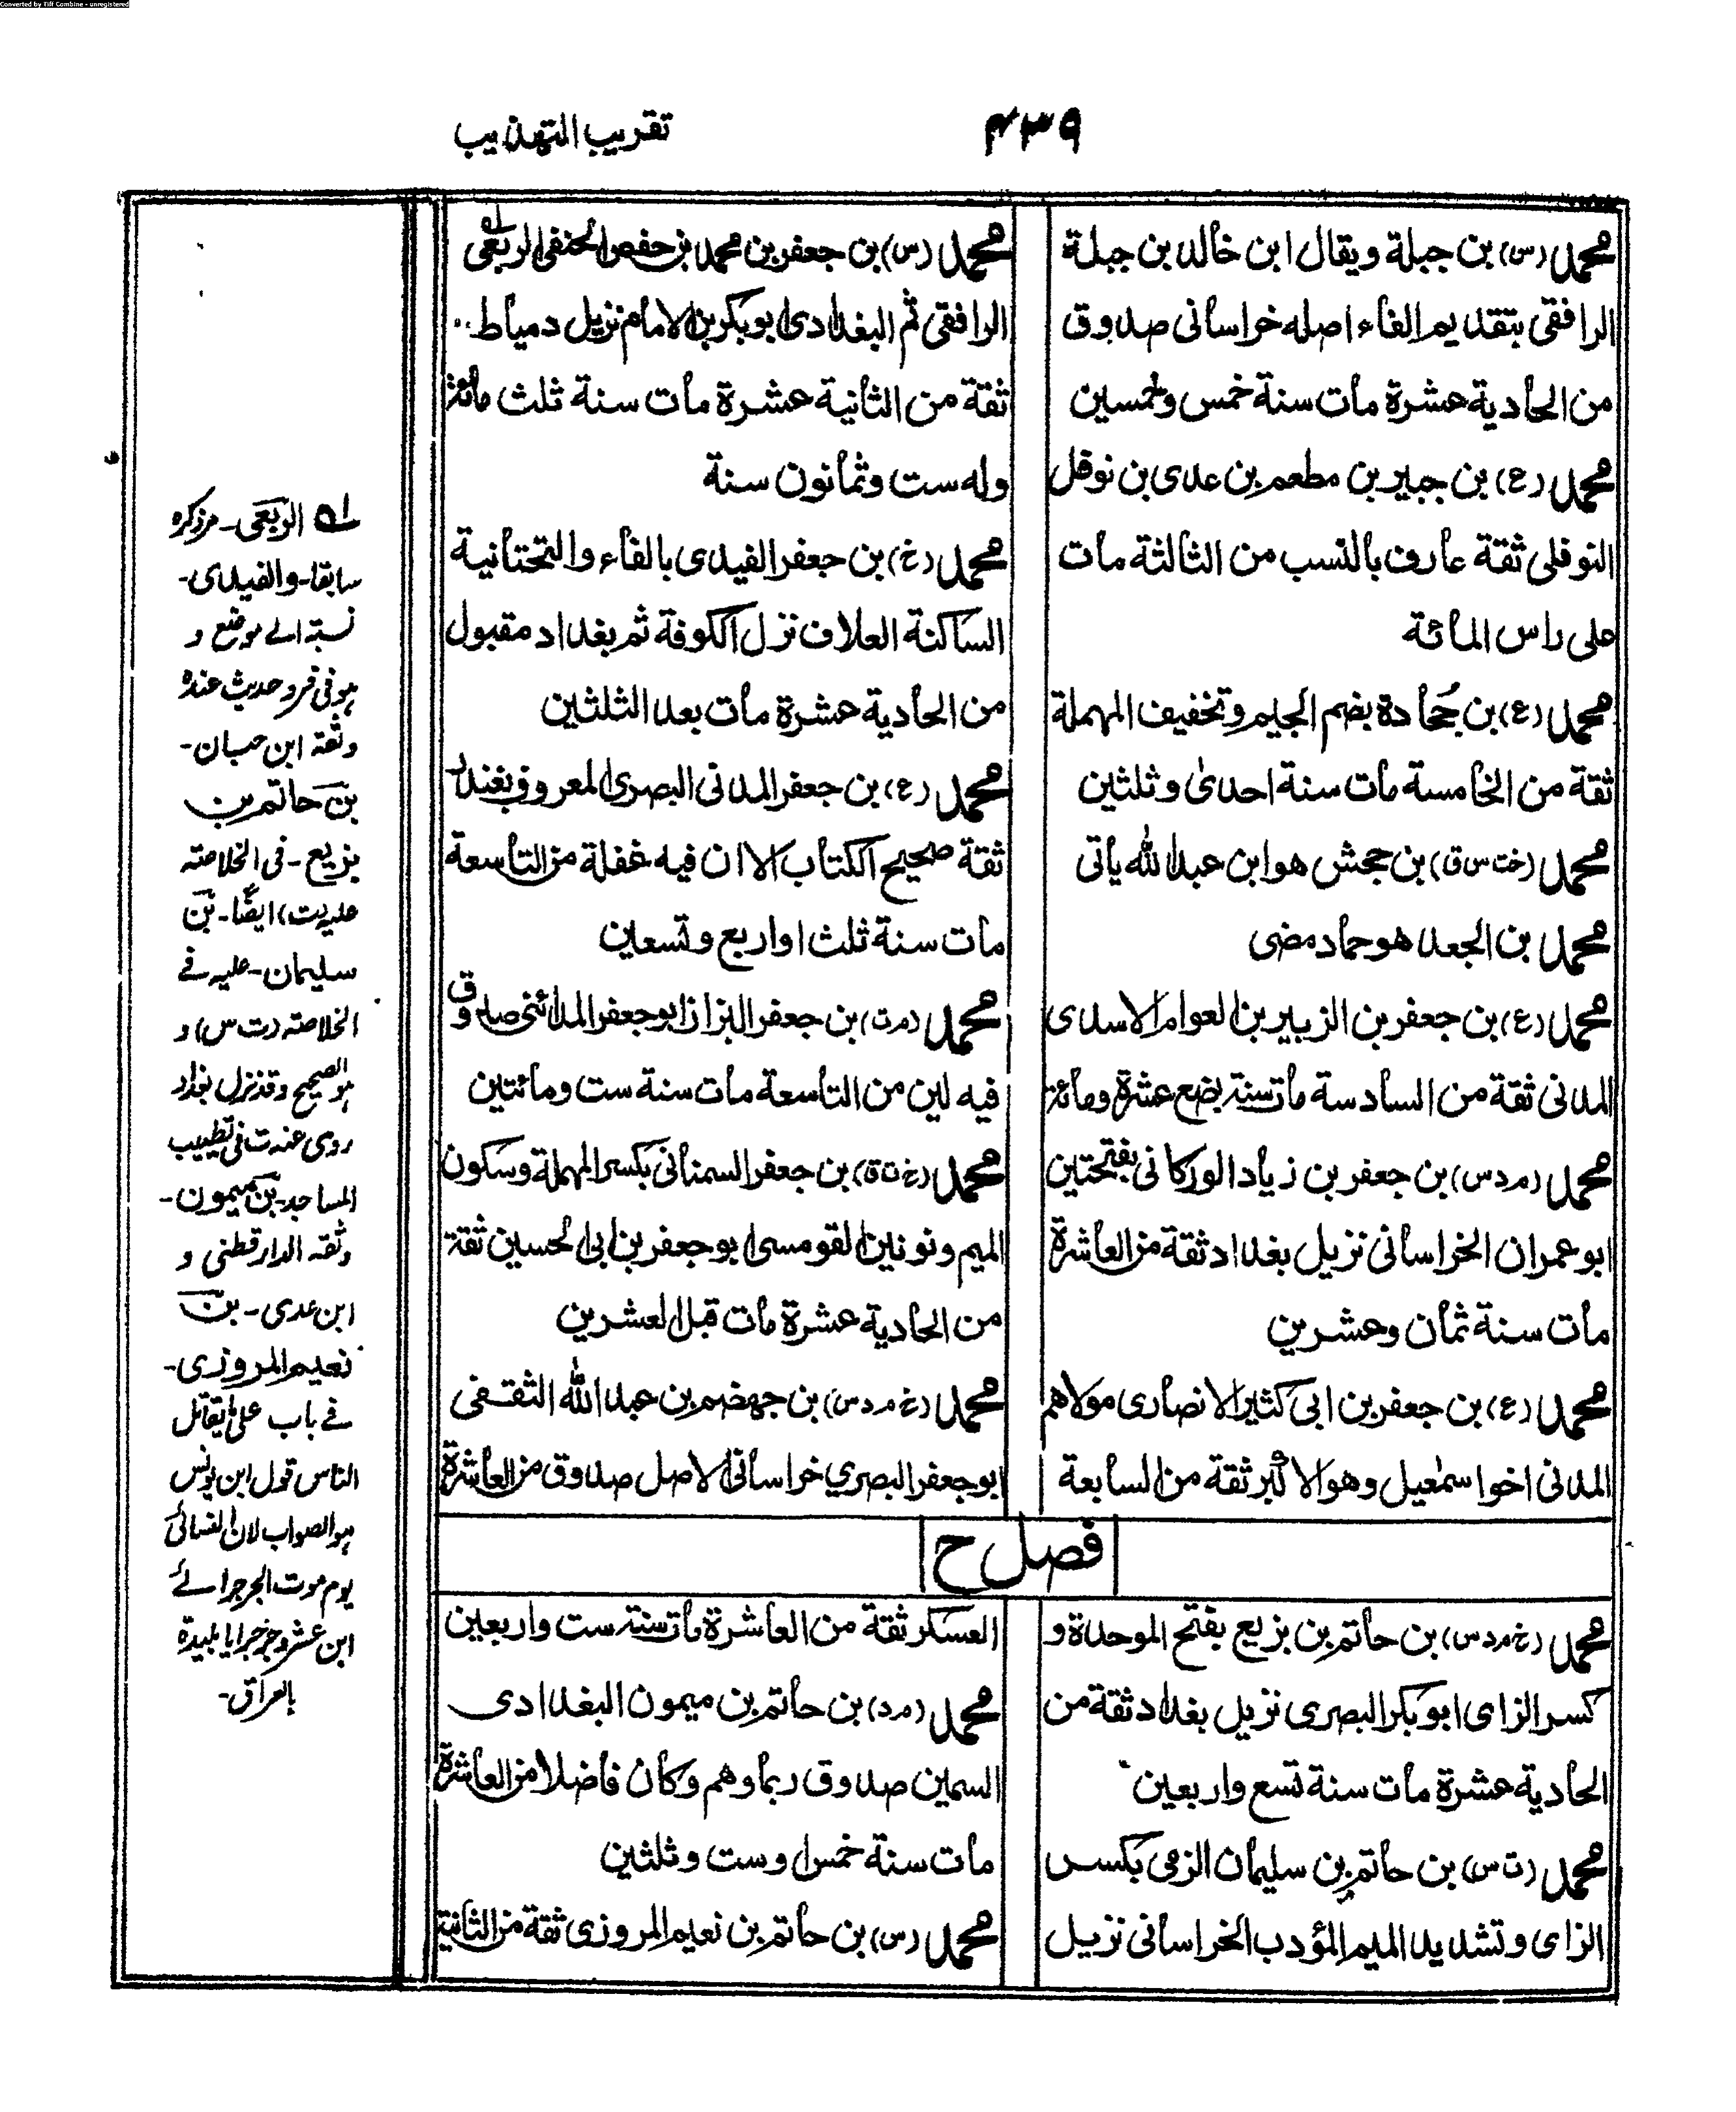 Converted by Tiff Combine - unregistered
۴۳۹
تقريب التهذيب
محمد (س) بن جبلة ويقال ابن خالد بن جبلة
الرافقى بتقديم الفاء اصله خراسانى صدوق
من الحادية عشرة مات سنة خمس وخمسين
محمد (ع) بن جبير بن مطعم بن عدى بن نوفل
النوفلى ثقة عارف بالنسب من الثالثة مات
على راس المائة
محمد (ع) بن جُحادة بضم الجيم وتخفيف المهملة
ثقة من الخامسة مات سنة احدى وثلثين
محمد (خت س ق) بن جحش هو ابن عبد الله ياتى
محمد بن الجعد هو حماد مضى
محمد (ع) بن جعفر بن الزبير بن العوام الاسدى
المدنى ثقة من السادسة مات سنة بضع عشرة ومائة
محمد (م د س) بن جعفر بن زياد الوركانى بفتحتين
ابو عمران الخراسانى نزيل بغداد ثقة من العاشرة
مات سنة ثمان وعشرين
محمد (ع) بن جعفر بن ابى كثير الانصارى مولاهم
المدنى اخو اسمعيل وهو الاكبر ثقة من السابعة
محمد (س) بن جعفر بن محمد بن حفص الحنفى الربعى ۱ه
الرافقى ثم البغدادى ابو بكر بن الامام نزيل دمياط
ثقة من الثانية عشرة مات سنة ثلث مائة
وله ست وثمانون سنة
محمد (خ) بن جعفر الفيدى بالفاء والتحتانية
الساكنة العلاف نزل الكوفة ثم بغداد مقبول
من الحادية عشرة مات بعد الثلثين
محمد (ع) بن جعفر المدنى البصرى المعروف بغندر
ثقة صحيح الكتاب الا ان فيه غفلة من التاسعة
مات سنة ثلث او اربع وتسعين
محمد (م ت) بن جعفر البزاز ابو جعفر المدائنى صدوق
فيه لين من التاسعة مات سنة ست ومائتين
محمد (خ ت ق) بن جعفر السمنانى بكسر المهملة وسكون
الميم ونونين القومسى ابو جعفر بن ابى الحسين ثقة
من الحادية عشرة مات قبل العشرين
محمد (خ م د س) بن جهضم بن عبد الله الثقفى
ابو جعفر البصري خراسانى الاصل صدوق من العاشرة
فصل ح
محمد (خ م د س) بن حاتم بن بزيع بفتح الموحدة و
كسر الزاى ابو بكر البصرى نزيل بغداد ثقة من
الحادية عشرة مات سنة تسع واربعين
محمد (ت س) بن حاتم بن سليمان الزمى بكسر
الزاى وتشديد الميم المؤدب الخراسانى نزيل
العسكر ثقة من العاشرة مات سنة ست واربعين
محمد (م د) بن حاتم بن ميمون البغدادى
السمين صدوق ربما وهم وكان فاضلا من العاشرة
مات سنة خمس او ست وثلثين
محمد (س) بن حاتم بن نعيم المروزى ثقة من الثانية
۱ه الربعى ـ مر ذكره
سابقا ـ والفيدى ـ
نسبة الے موضع و
هو فى فرد حديث عنده
وثقه ابن حبان ـ
بن حاتم بن
بزيع ـ فى الخلاصة
عليه (ت) ايضًا ـ بن
سليمان ـ عليه فے
الخلاصة (ت س) و
هو الصحيح وقد نزل بغداد
روى عنه ت فى تطييب
المساجد ـ بن ميمون ـ
وثقه الدارقطنى و
ابن عدى ـ بن
نعيم المروزى ـ
فے باب على ما يقاتل
الناس قول ابن يونس
هو الصواب لان النسائى
يوم موت الجرجرائے
ابن عشر وجرجرايا بليدة
بالعراق ـ